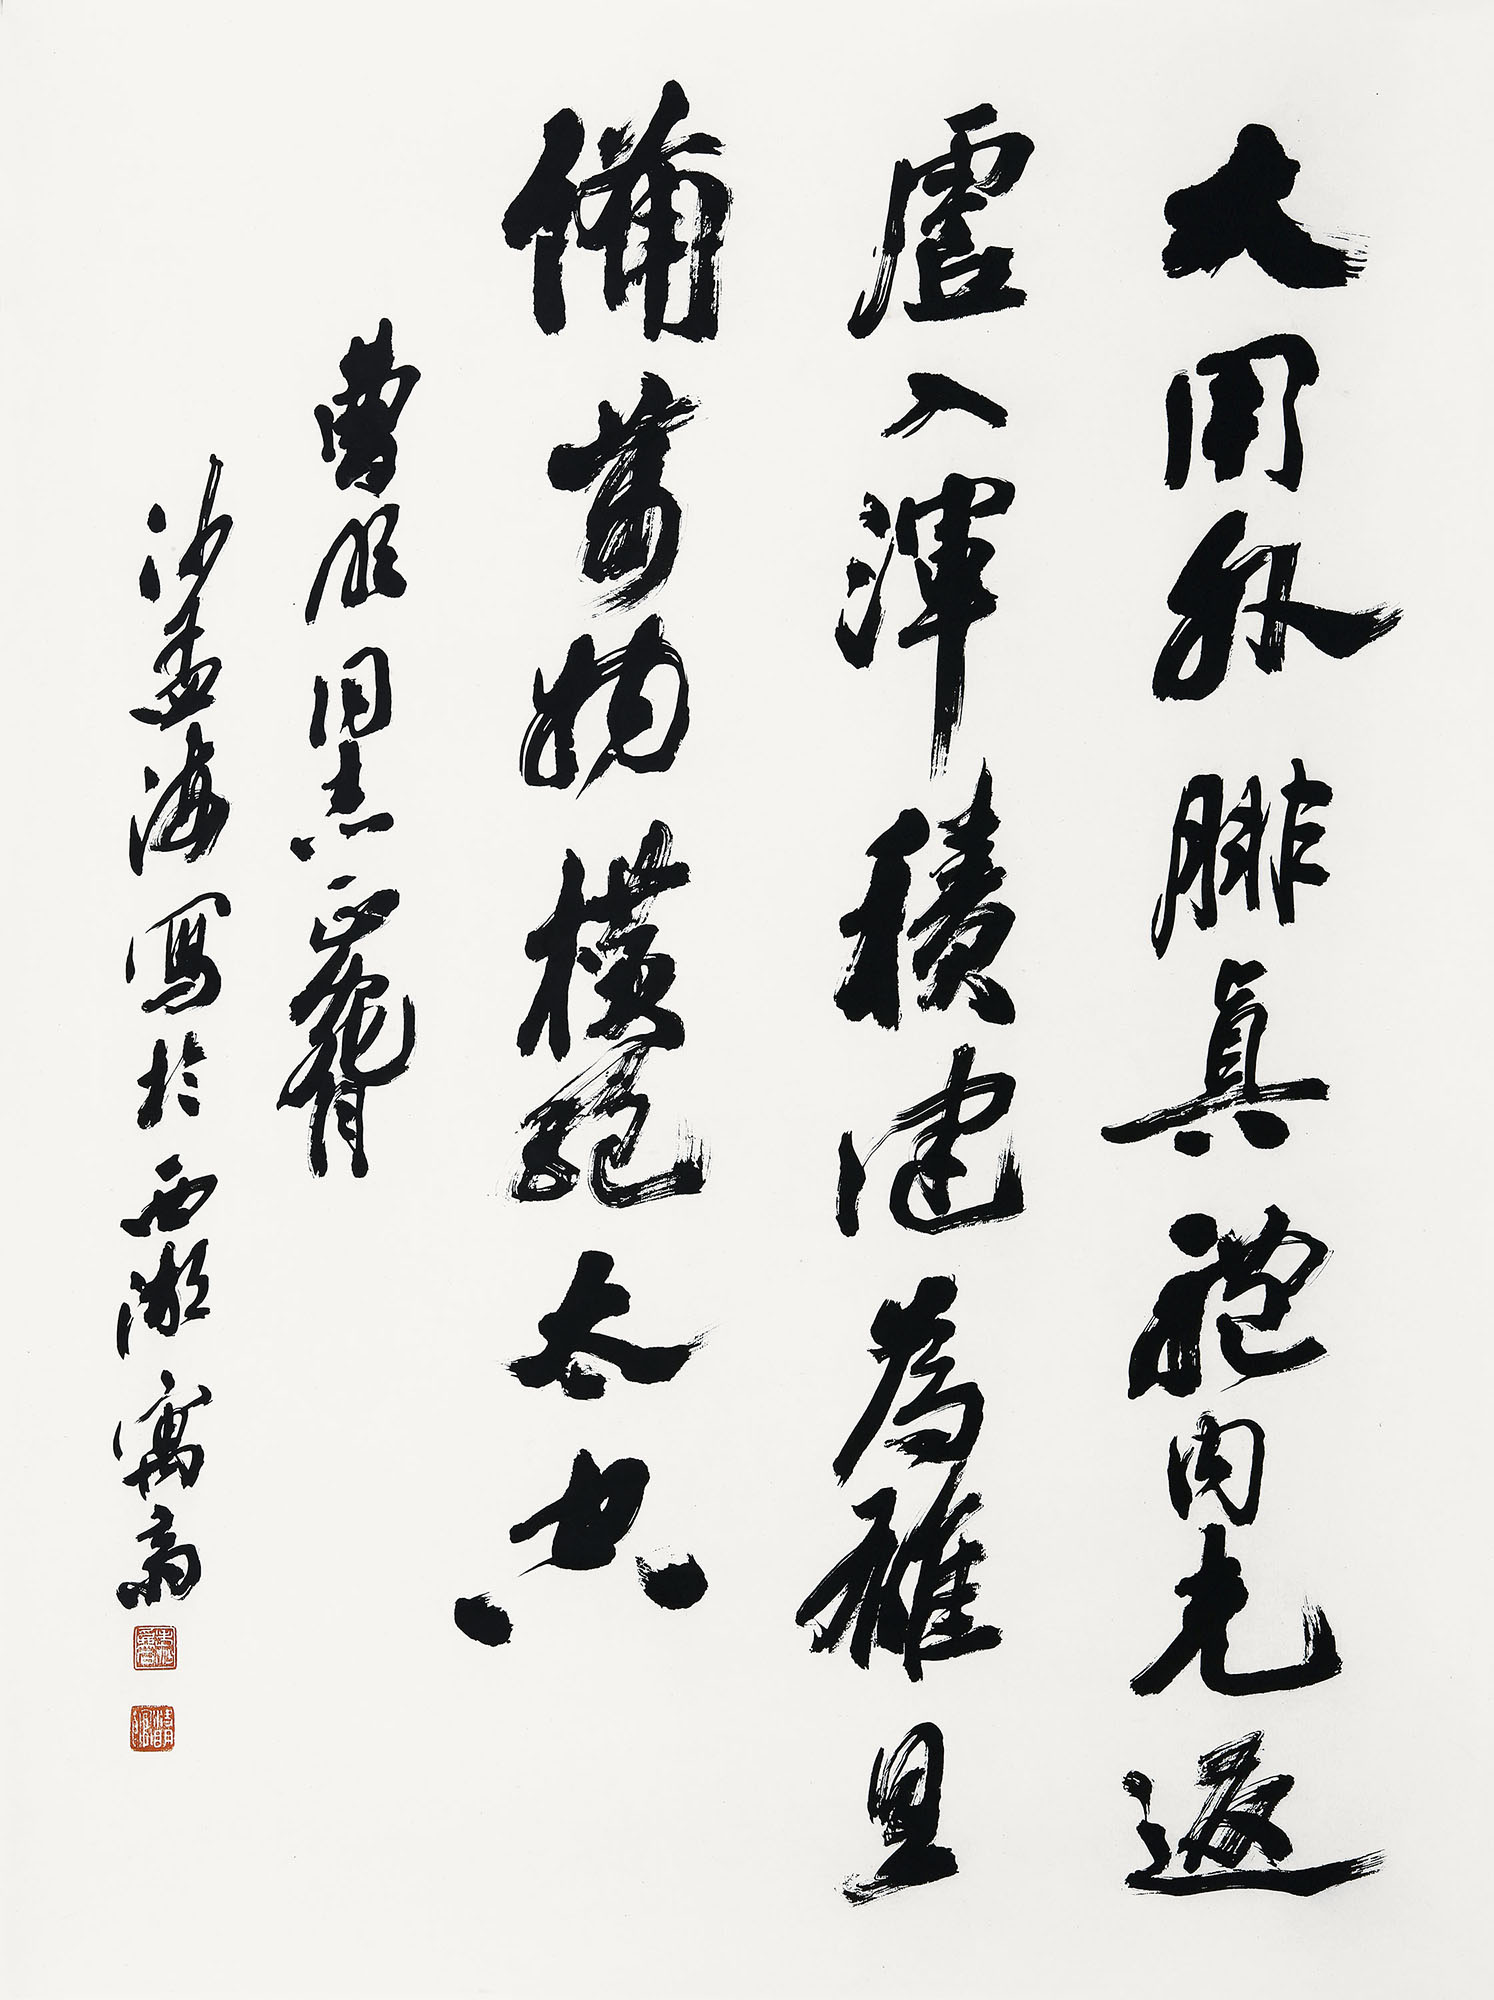 大用外腓真體內充返
虛入渾積健為雄具
備萬物橫絕太空
曹同志正
沙孟海寫於西湖寓齋